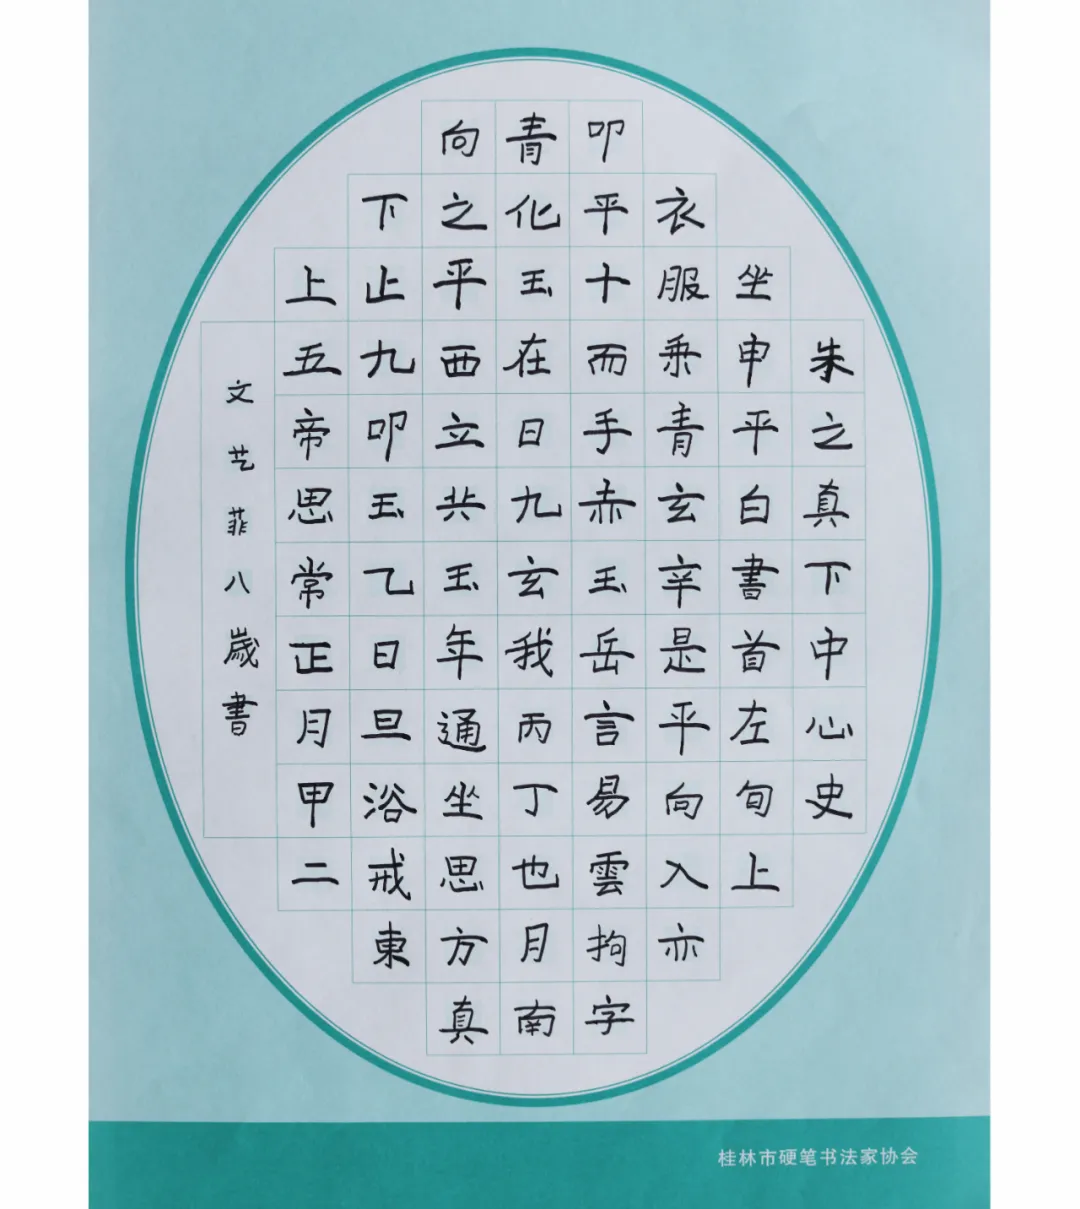 朱之真下中心史
坐申平白書首左旬上
衣服乘青玄辛是平向入亦
叩平十而手赤玉岳言易雲拘字
青化玉在日九玄我丙丁也月南
向之平西立共玉年通坐思方真
下止九叩玉乙日旦浴戒東
上五帝思常正月甲二
文艺菲八歲書
桂林市硬笔书法家协会